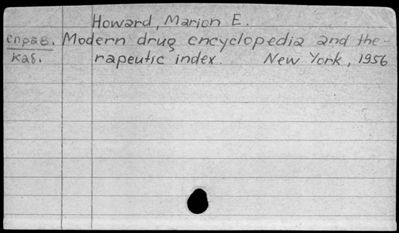 Howard, Marion E.
справ. Modern drug encyclopedia and the-
каб. rapeutic index. New York, 1956